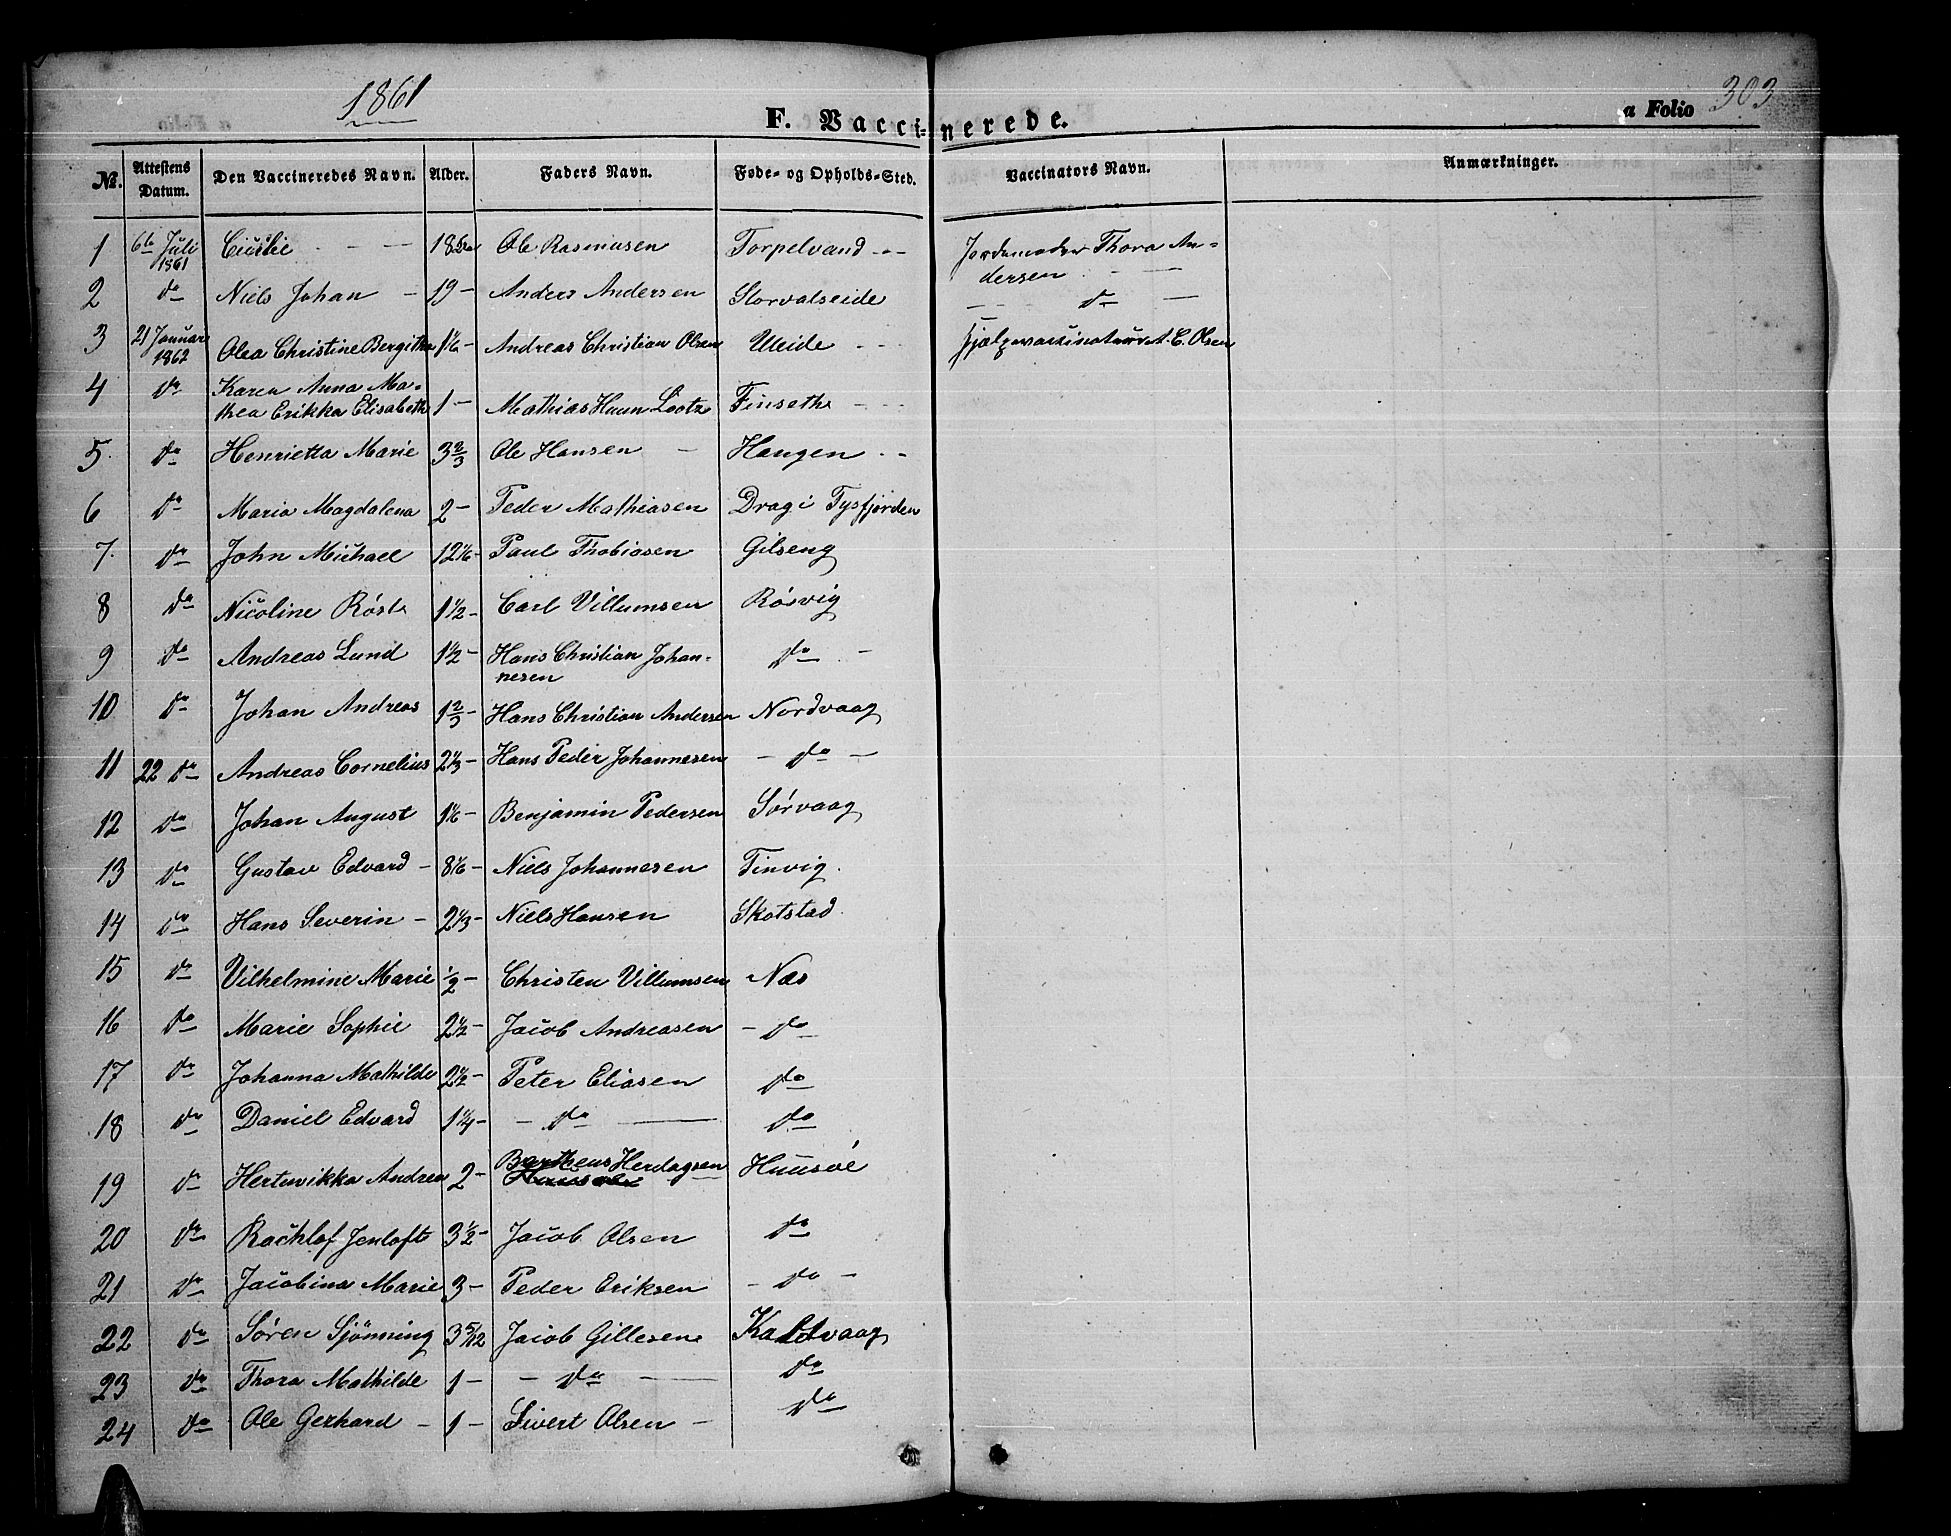 1861
F. Vaccinerede.
a Folio 303
No. Attestens Datum. Den Vaccineredes Navn. Alder. Faders Navn. Føde- og Opholds-Sted. Vaccinators Navn. Anmærkninger.
1 6te Juli 1861 18 Ole Rasmusen Torpelvand Jordemoder Thora An-
dersen
2 do Niels Johan 19 Anders Andersen Storvalseide do
3 21 Januar 1862 Olea Christine Bergitha 1 1/6 Andreas Christian Olsen Uleide Hjælpevaccinateur A. C. Olsen
4 do Karen Anna Ma-
thea Erikka Elisabeth 1 Mathias Huun Lootz Finseth
5 do Henrietta Marie 3 2/3 Ole Hansen Haugen
6 do Maria Magdalena 2 Peder Mathiasen Drag i Tysfjorden
7. do John Michael 12 1/6 Paul Thobiasen Gilseng
8 do Nicoline Röst 1 1/2 Carl Villumsen Røsvig
9 do Andreas Lund 1 1/2 Hans Christian Johan-
nesen do
10 do Johan Andreas 1 2/3 Hans Christian Andersen Nordvaag
11 22 do Andreas Cornelius 2 1/3 Hans Peder Johannesen do
12 do Johan August 1 1/6 Benjamin Pedersen Sørvaag
13 do Gustav Edvard 8 1/6 Niels Johannesen Tinvig.
14 do Hans Severin 2 1/3 Niels Hansen Skotstad
15 do Vilhelmine Marie 1/2 Christen Villumsen Næs
16 do Marie Sophie 2 1/2 Jacob Andreasen do
17 do Johanna Mathilde 2 1/2 Peter Eliasen do
18 do Daniel Edvard 1 1/4 do do
19 do Hertuvikka Andrea 2 Bartheus Herdagsen Huusöe
20 do Rachlof Jenloft 3 1/2 Jacob Olsen do
21 do Jacobina Marie 3 Peder Eriksen do
22 do Søren Sjönning 3 5/12 Jacob Gillesen Kaldvaag
23 do Thora Mathilde 1 do do
24 do Ole Gerhard 1 Sivert Olsen do